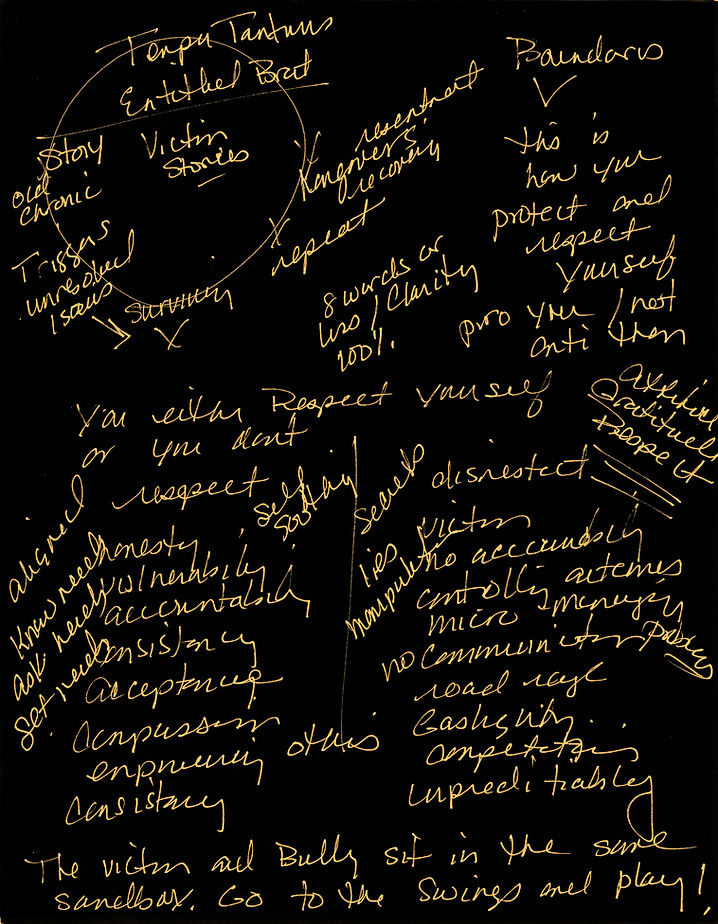 Temper Tantrums
Entitled Brat
Story
Victim
Stories
Old
Chronic
Triggers
unresolved
Issues
Surviving
X
X
resentment
Hangovers
recovery
X
repeat
8 words or
less / Clarity
100%
Boundaries
This is
how you
protect and
respect
yourself
pro you / not
anti them
You either Respect yourself
or you dont
Attitude
Gratitude
Respect
respect
aligned
Know needs
ask needs
Set needs
Self
Soothing
honesty
vulnerability
accountability
Consistency
acceptance
Compassion
empowering others
Consistency
disrespect
secrets
lies
manipulation
victim
no accountability
controlling outcomes
micro managing
no communication
road rage
Gaslighting
competition
unpredictability
The victim and Bully sit in the same
sandbox. Go to the Swings and play!